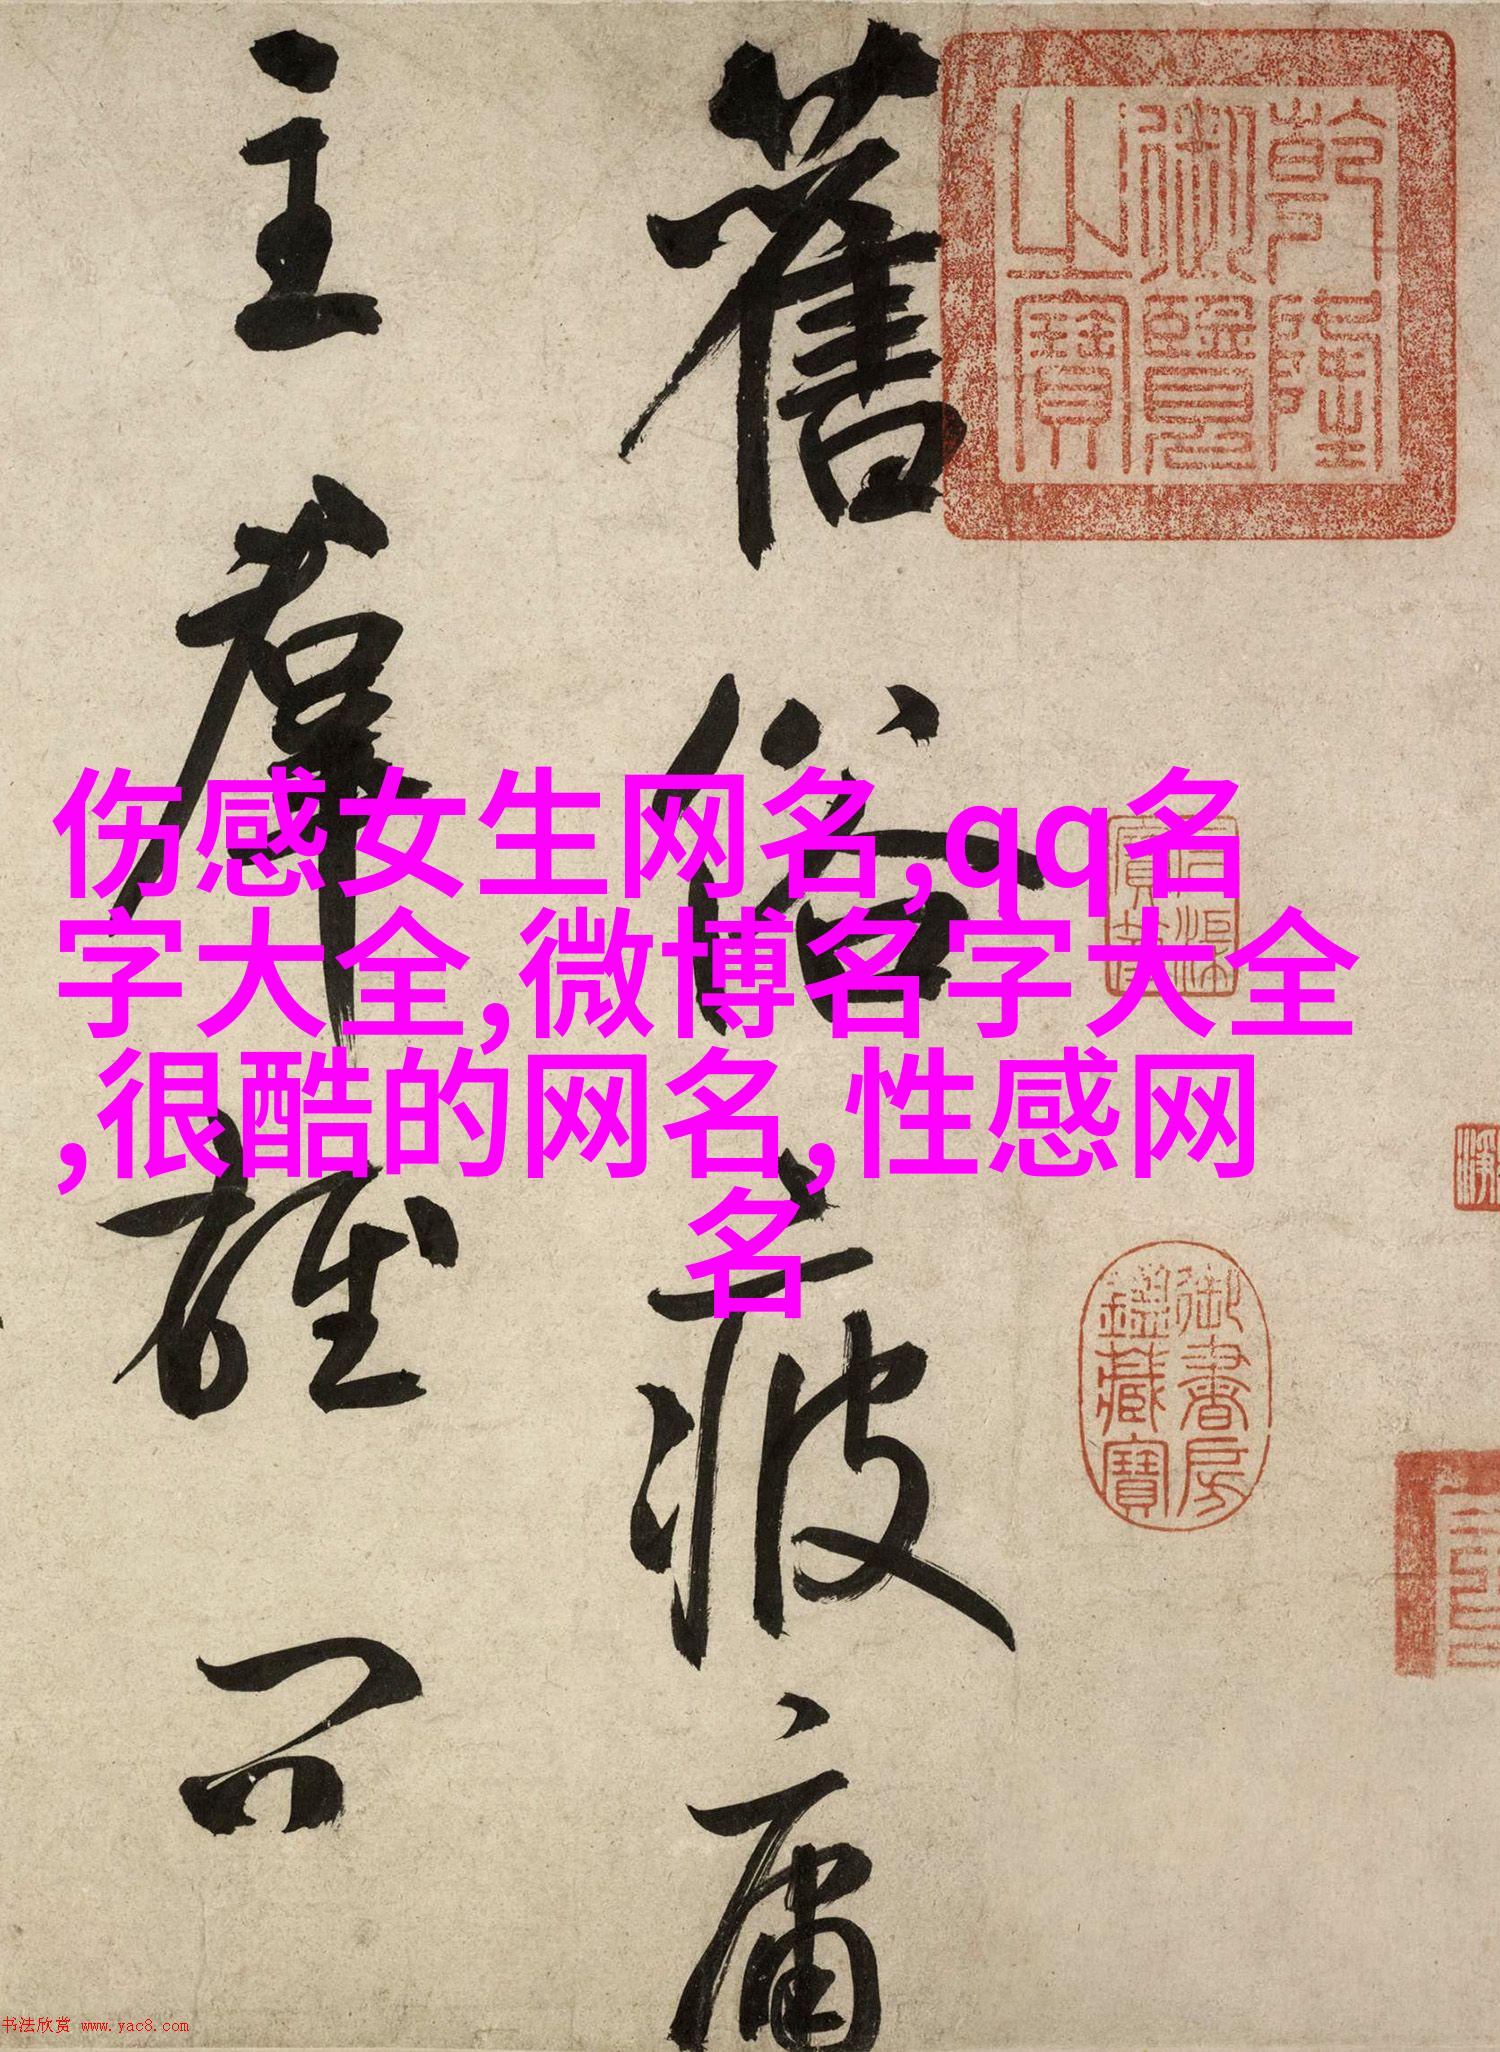 乾隆
御覽
之寶
舊俗疲庸
主羣雄問
伤感女生网名,qq名
字大全,微博名字大全
,很酷的网名,性感网
名
石渠
寶笈
御書房
鑑藏寶
书法欣赏 www.yac8.com